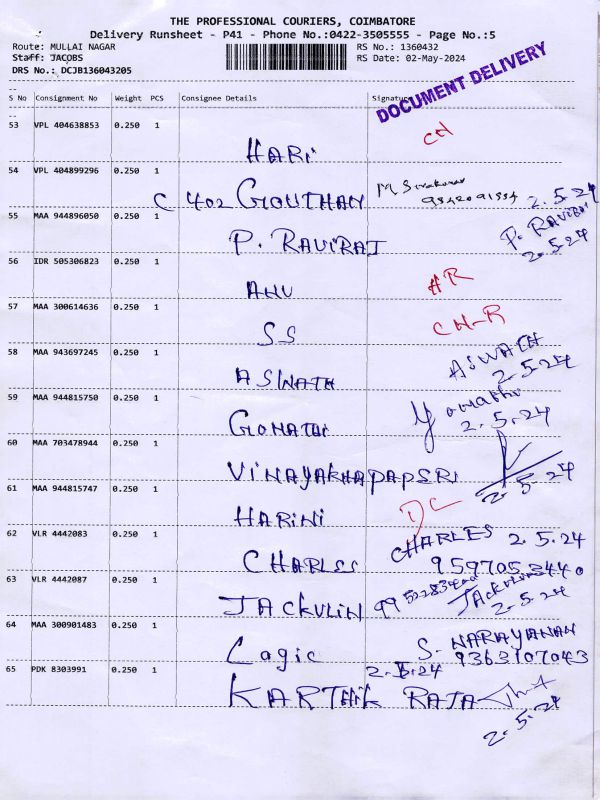 THE PROFESSIONAL COURIERS, COIMBATORE
Delivery Runsheet - P41 - Phone No.:0422-3505555 - Page No.:5
Route: MULLAI NAGAR RS No.: 1360432
Staff: JACOBS RS Date: 02-May-2024
DRS No.: DCJB136043205
DOCUMENT DELIVERY
S No Consignment No Weight PCS Consignee Details Signature
53 VPL 404638853 0.250 1
HARI
54 VPL 404899296 0.250 1
C 402 GOUTHAM 2.5.24
55 MAA 944896050 0.250 1
P. RAVIRAJ P. RAVIRAJ 2.5.24
56 IDR 505306823 0.250 1
ANU HR
57 MAA 300614636 0.250 1
SS CH-R
58 MAA 943697245 0.250 1
ASWATH ASWATH 2.5.24
59 MAA 944815750 0.250 1
GOMATHI Gomathi 2.5.24
60 MAA 703478944 0.250 1
VINAYAKHAPAPSRI 2.5.24
61 MAA 944815747 0.250 1
HARINI DC
62 VLR 4442083 0.250 1
CHARLES CHARLES 2.5.24
9597053440
63 VLR 4442087 0.250 1
JACKULIN JACKULIN 2.5.24
64 MAA 300901483 0.250 1
Lagic S. NARAYANAN
9363107043
65 PDK 8303991 0.250 1 2.5.24
KARTHIK RAJA 2.5.24